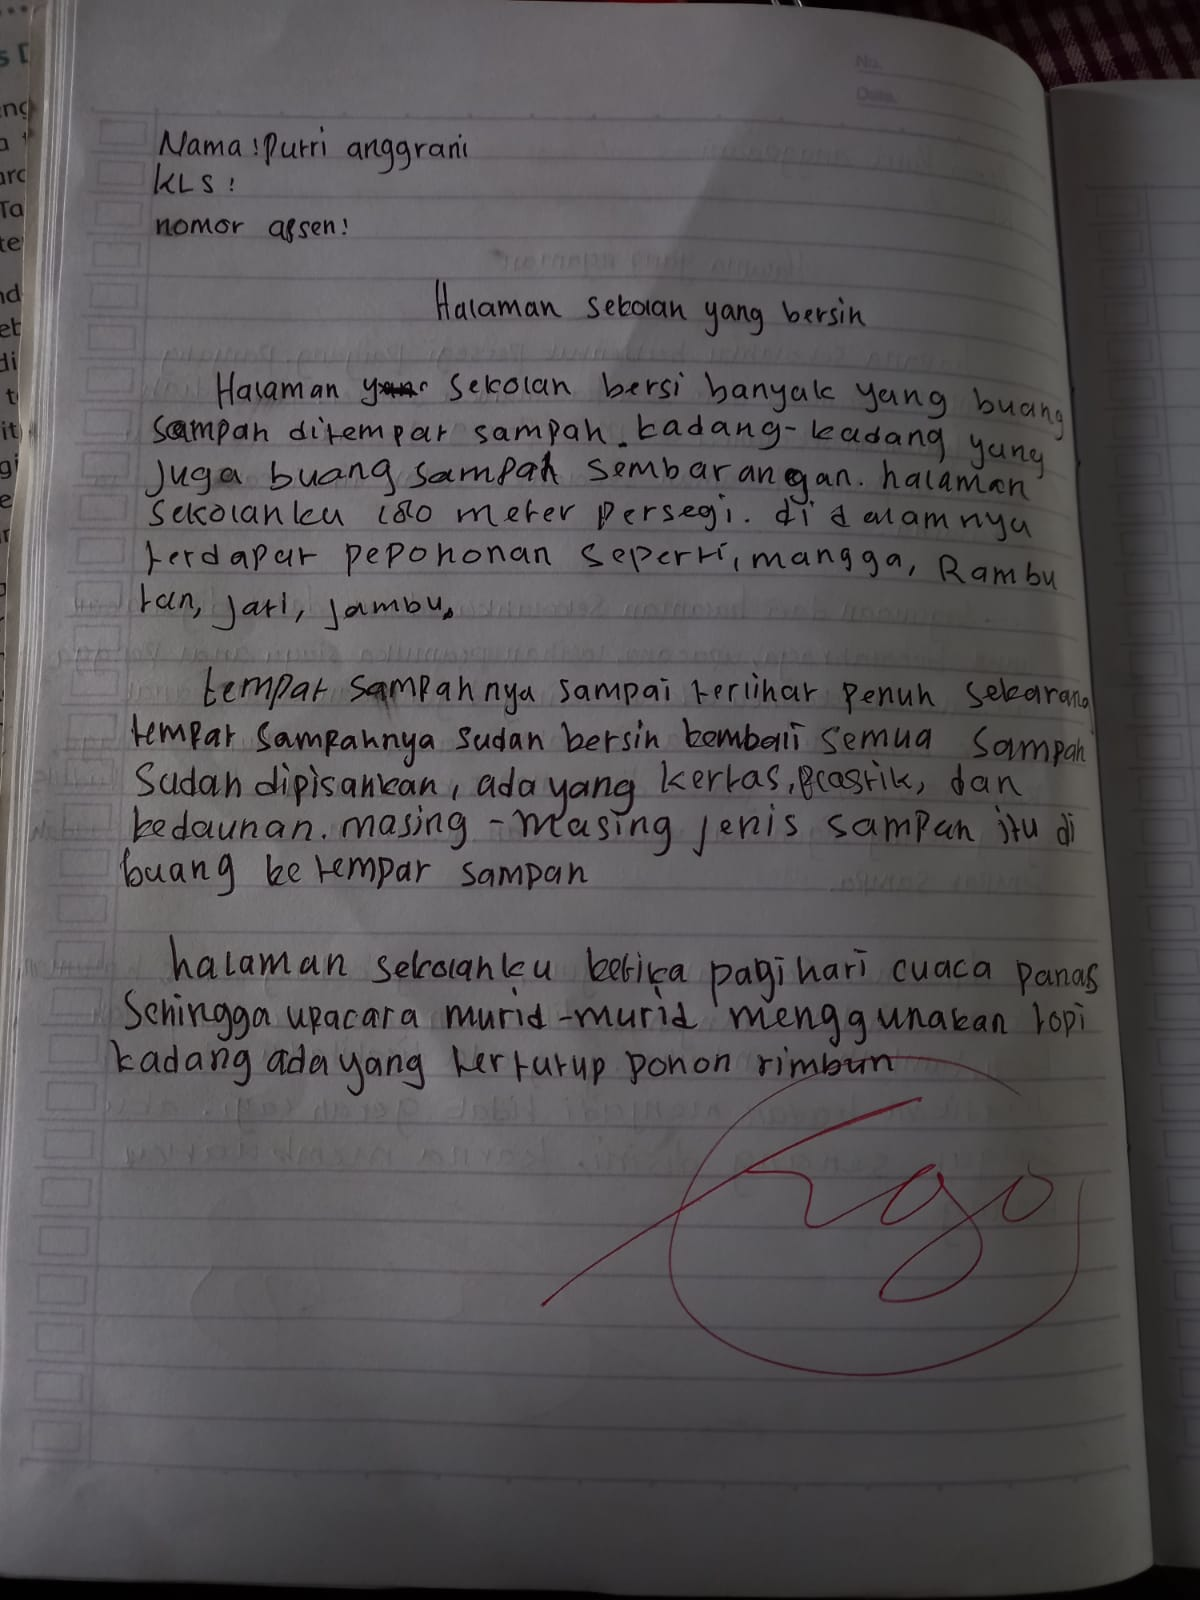 Nama : Putri anggrani
KLS :
nomor absen :
Halaman sekolah yang bersih
Halaman sekolah bersi banyak yang buang
sampah ditempat sampah. kadang-kadang yang
Juga buang sampah sembarangan. halaman
sekolahku 180 meter persegi. di dalamnya
terdapat pepohonan seperti, mangga, Rambu
tan, jati, jambu.
tempat sampahnya sampai terlihat penuh sekarang
tempat sampahnya sudah bersih kembali semua sampah
Sudah dipisahkan, ada yang kertas, plastik, dan
kedaunan. masing-masing jenis sampah itu di
buang ke tempat sampah
halaman sekolahku ketika pagi hari cuaca panas
Sehingga upacara murid-murid menggunakan topi
kadang ada yang tertutup pohon rimbun